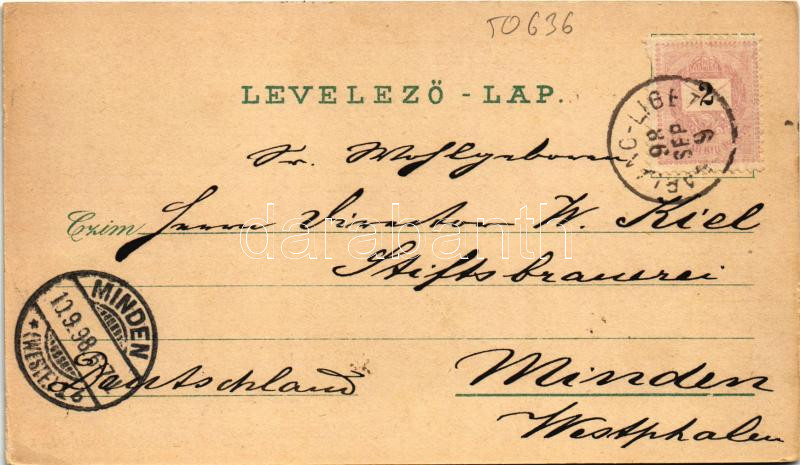 TO636
LEVELEZŐ - LAP.
2
98
SEP
9
Sr. Wohlgeboren
Czim Herrn Director W. Kiel
darabanth
Stiftsbrauerei
MINDEN
10.9.98.
* (WESTF.)
Deutschland Minden
Westphalen